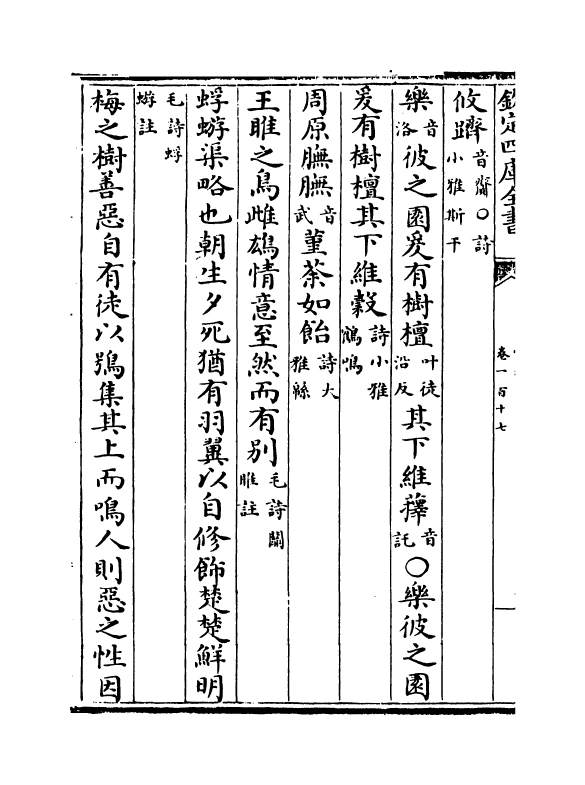 欽定四庫全書
卷一百十七
攸躋音齎○詩小雅斯干
樂音洛彼之園爰有樹檀叶徒沿反其下維蘀音託○樂彼之園
爰有樹檀其下維榖詩小雅鶴鳴
周原膴膴音武菫荼如飴詩大雅緜
王雎之鳥雌雄情意至然而有别毛詩關雎註
蜉蝣渠略也朝生夕死猶有羽翼以自修飾楚楚鮮明
毛詩蜉蝣註
梅之樹善惡自有徒以鴞集其上而鳴人則惡之性因